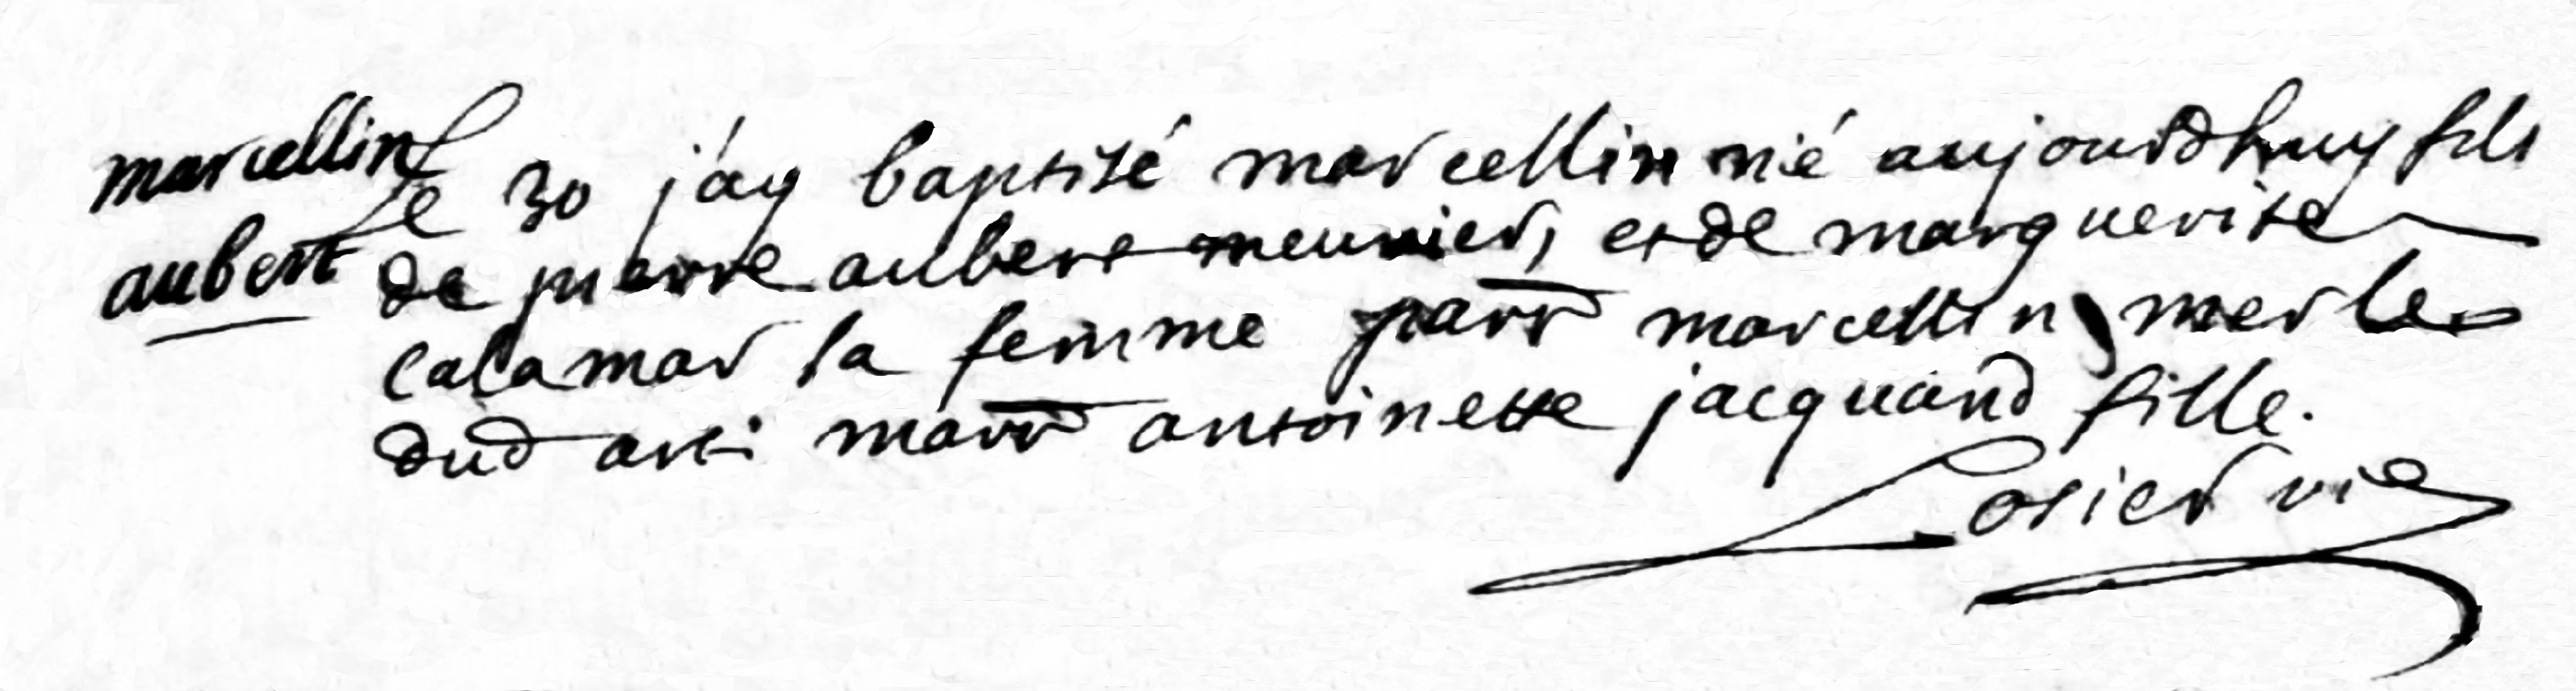 marcellin
aubert
Le 30 j'ay baptisé marcellin né aujourdhuy fils
de pierre aubert meunier, et de marguerite
calamar sa femme parr marcellin merle
dud art: marr antoinette jacquand fille.
Losier vic